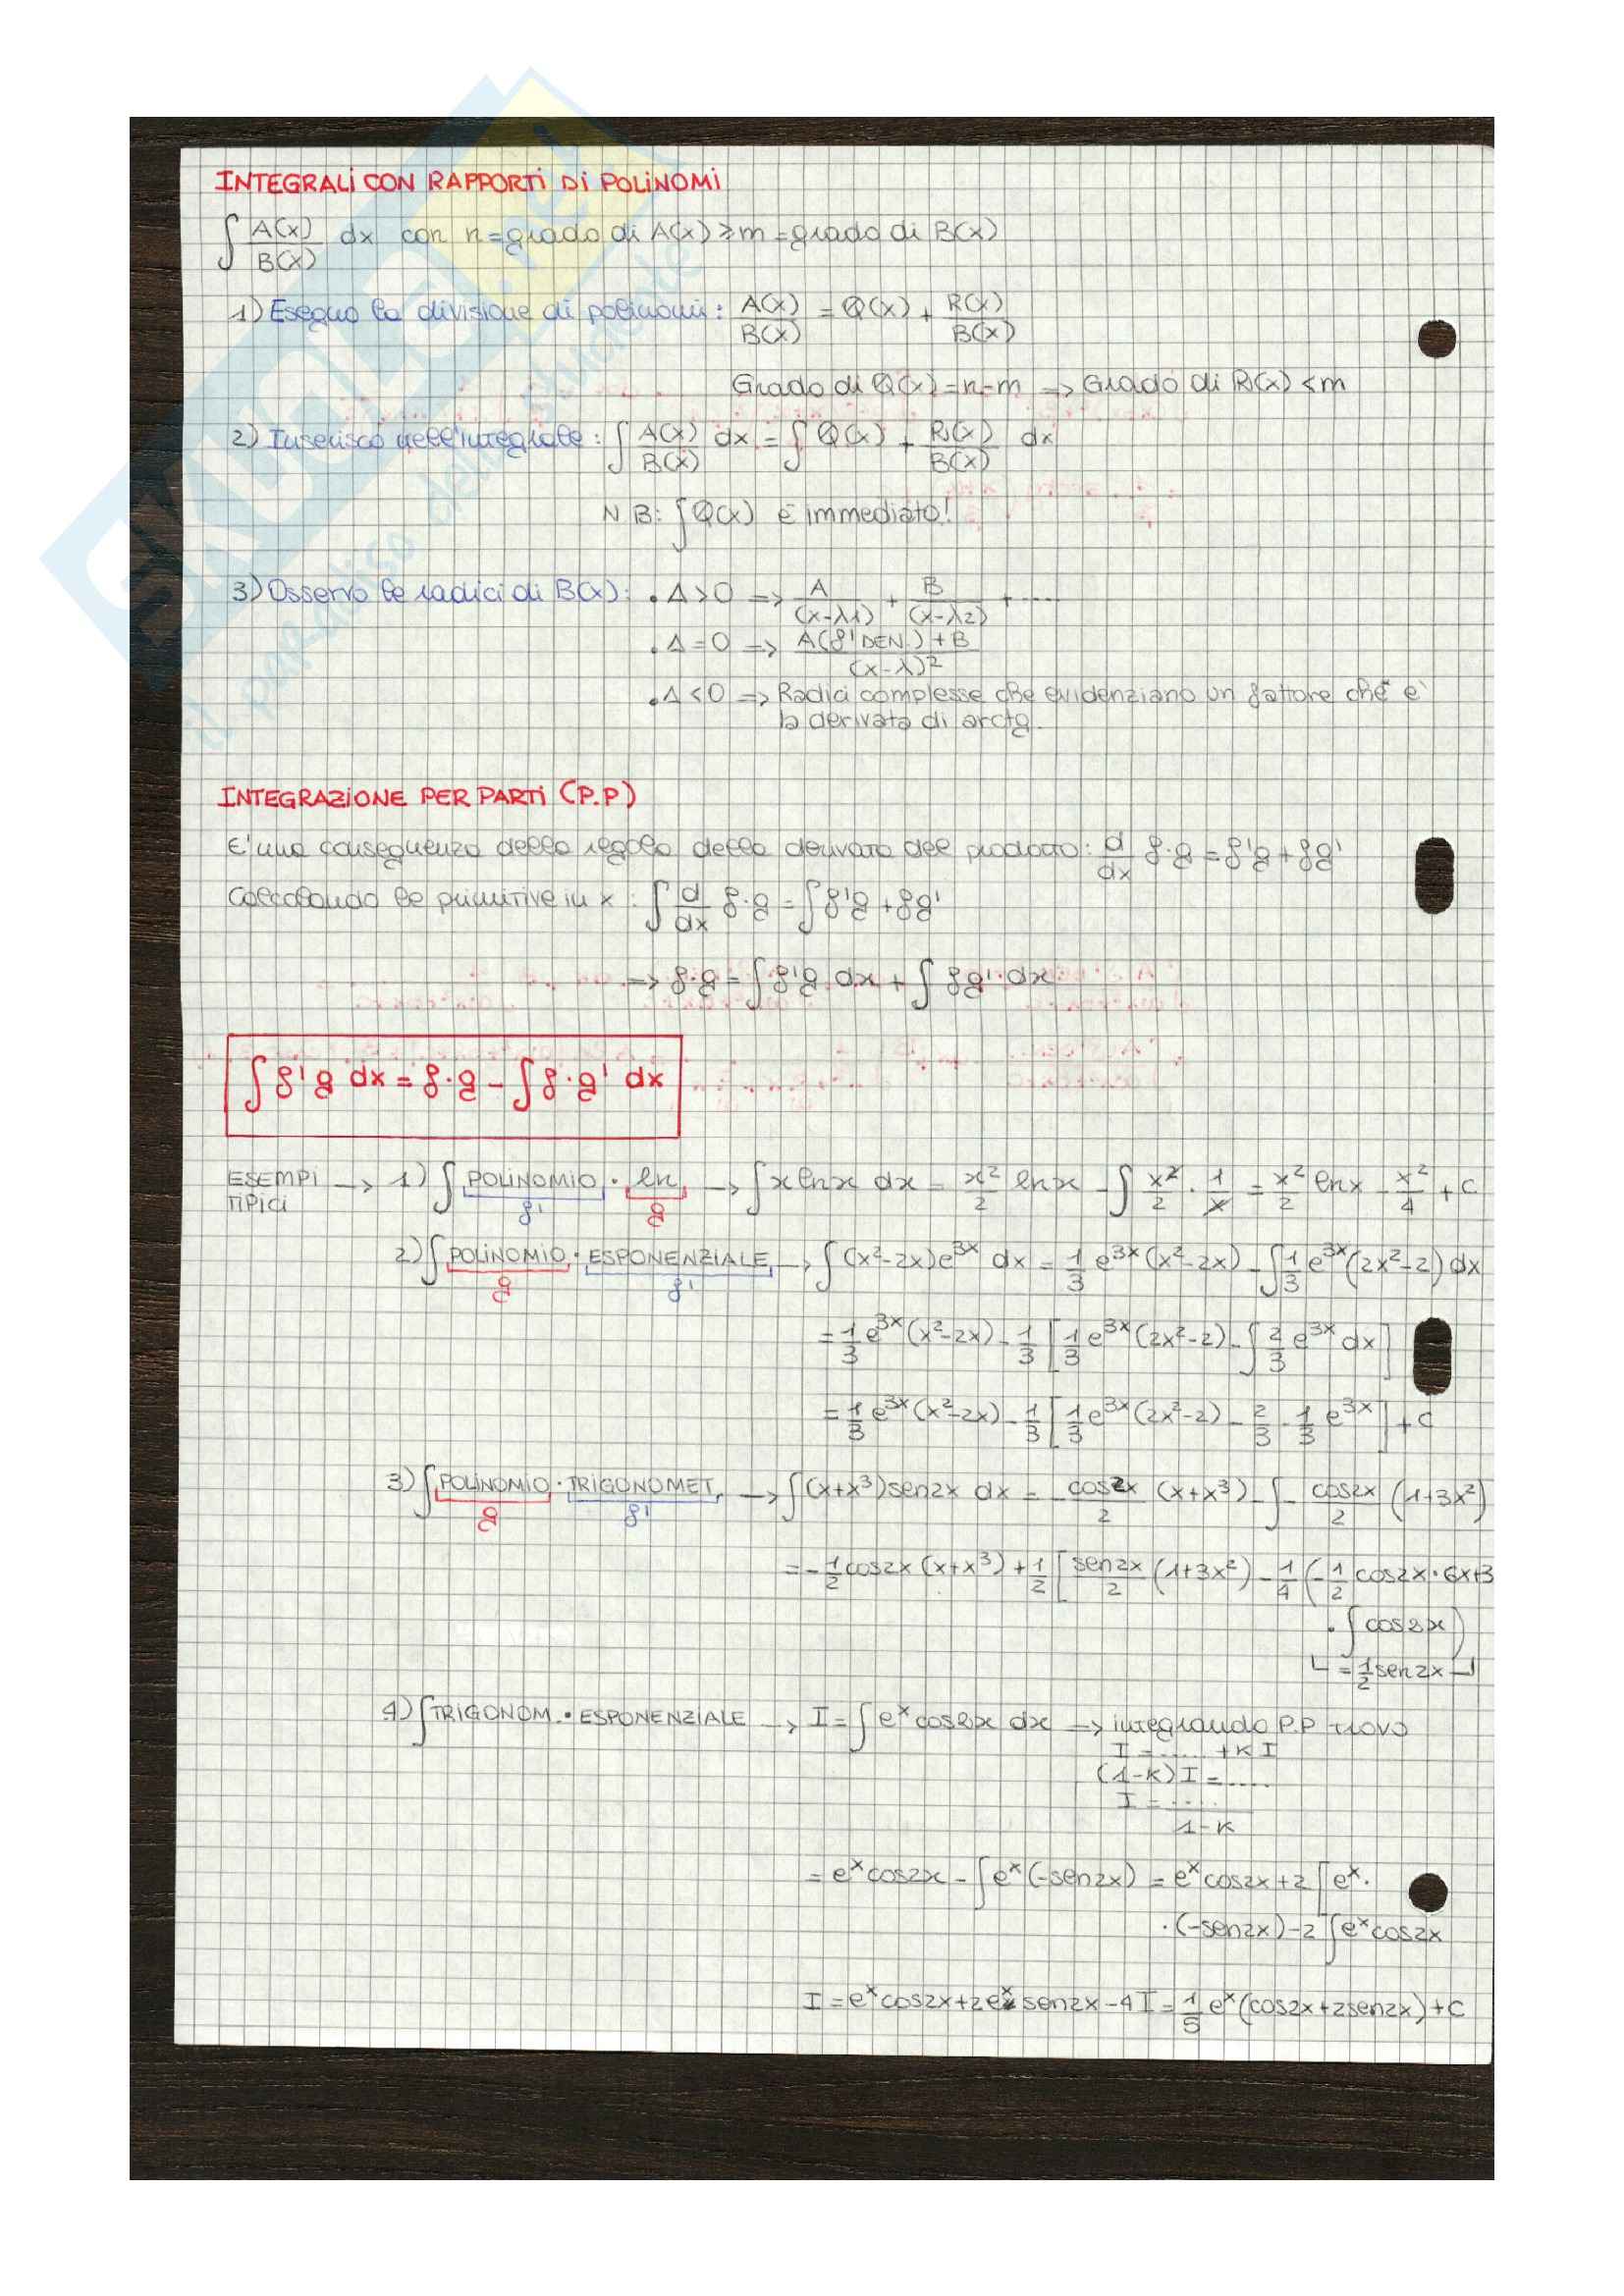 INTEGRALI CON RAPPORTI DI POLINOMI
∫ A(x)/B(x) dx con n=grado di A(x) ≥ m=grado di B(x)
1) Eseguo la divisione di polinomi: A(x)/B(x) = Q(x) + R(x)/B(x)
Grado di Q(x)=n-m → Grado di R(x) < m
2) Inserisco nell'integrale: ∫ A(x)/B(x) dx = ∫ Q(x) + R(x)/B(x) dx
NB: ∫Q(x) è immediato!
3) Osservo le radici di B(x): • Δ>0 => A/(x-λ1) + B/(x-λ2) + .....
• Δ=0 => A(f' DEN.)+B/(x-λ)²
• Δ<0 => Radici complesse che evidenziano un fattore che è
la derivata di arctg.
INTEGRAZIONE PER PARTI (P.P)
E' una conseguenza della regola della derivata del prodotto: d/dx f·g = f'g + fg'
Calcolando le primitive in x: ∫ d/dx f·g = ∫ f'g + fg'
→ f·g = ∫ f'g dx + ∫ fg' dx
∫ f'g dx = f·g - ∫ f·g' dx
ESEMPI TIPICI → 1) ∫ POLINOMIO · ln → ∫ x lnx dx = x²/2 lnx - ∫ x²/2 · 1/x = x²/2 lnx - x²/4 + c
f' g
2) ∫ POLINOMIO · ESPONENZIALE → ∫(x²-2x)e^3x dx = 1/3 e^3x (x²-2x) - ∫ 1/3 e^3x (2x²-2) dx
g f'
= 1/3 e^3x (x²-2x) - 1/3 [1/3 e^3x (2x²-2) - ∫ 2/3 e^3x dx]
= 1/3 e^3x (x²-2x) - 1/3 [1/3 e^3x (2x²-2) - 2/3 · 1/3 e^3x] + c
3) ∫ POLINOMIO · TRIGONOMET. → ∫(x+x³)sen2x dx = - cos2x/2 (x+x³) - ∫ - cos2x/2 (1+3x²)
g f'
= - 1/2 cos2x (x+x³) + 1/2 [sen2x/2 (1+3x²) - 1/4 (- 1/2 cos2x · 6x+3
· ∫ cos2x)
= 1/2 sen2x
4) ∫ TRIGONOM. · ESPONENZIALE → I = ∫ e^x cos2x dx → integrando P.P trovo
I = ..... + KI
(1-K) I = .....
I = ...../1-K
= e^x cos2x - ∫ e^x (-sen2x) = e^x cos2x + 2 [e^x ·
· (-sen2x) - 2 ∫ e^x cos2x
I = e^x cos2x + 2e^x sen2x - 4I = 1/5 e^x (cos2x + 2sen2x) + c
SKUOLA.net
il paradiso dello studente